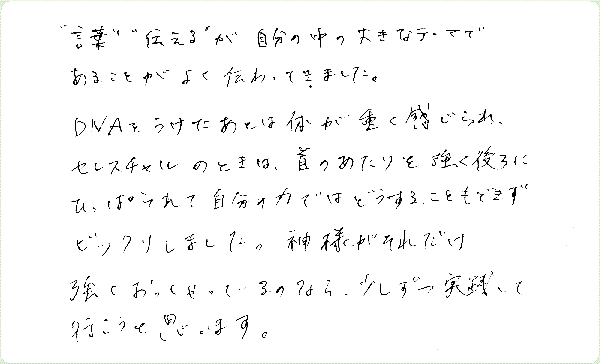 "言葉" "伝える" が 自分の中の大きなテーマで
あることがよく伝わってきました。
DNAをうけたあとは体が重く感じられ、
セレスチャルのときは、首のあたりを強く後ろに
ひっぱられて自分の力ではどうすることもできず
ビックリしました。神様がそれだけ
強くおっしゃっているのなら、少しずつ実践して
行こうと思います。